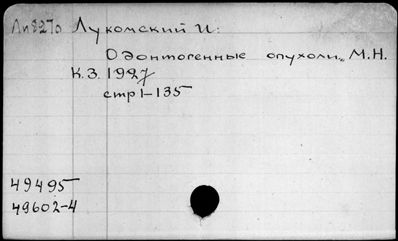 Ли827о Лукомский И:
Одонтогенные опухоли. М.Н.
К.З. 1927
стр 1-135
49495
49602-4